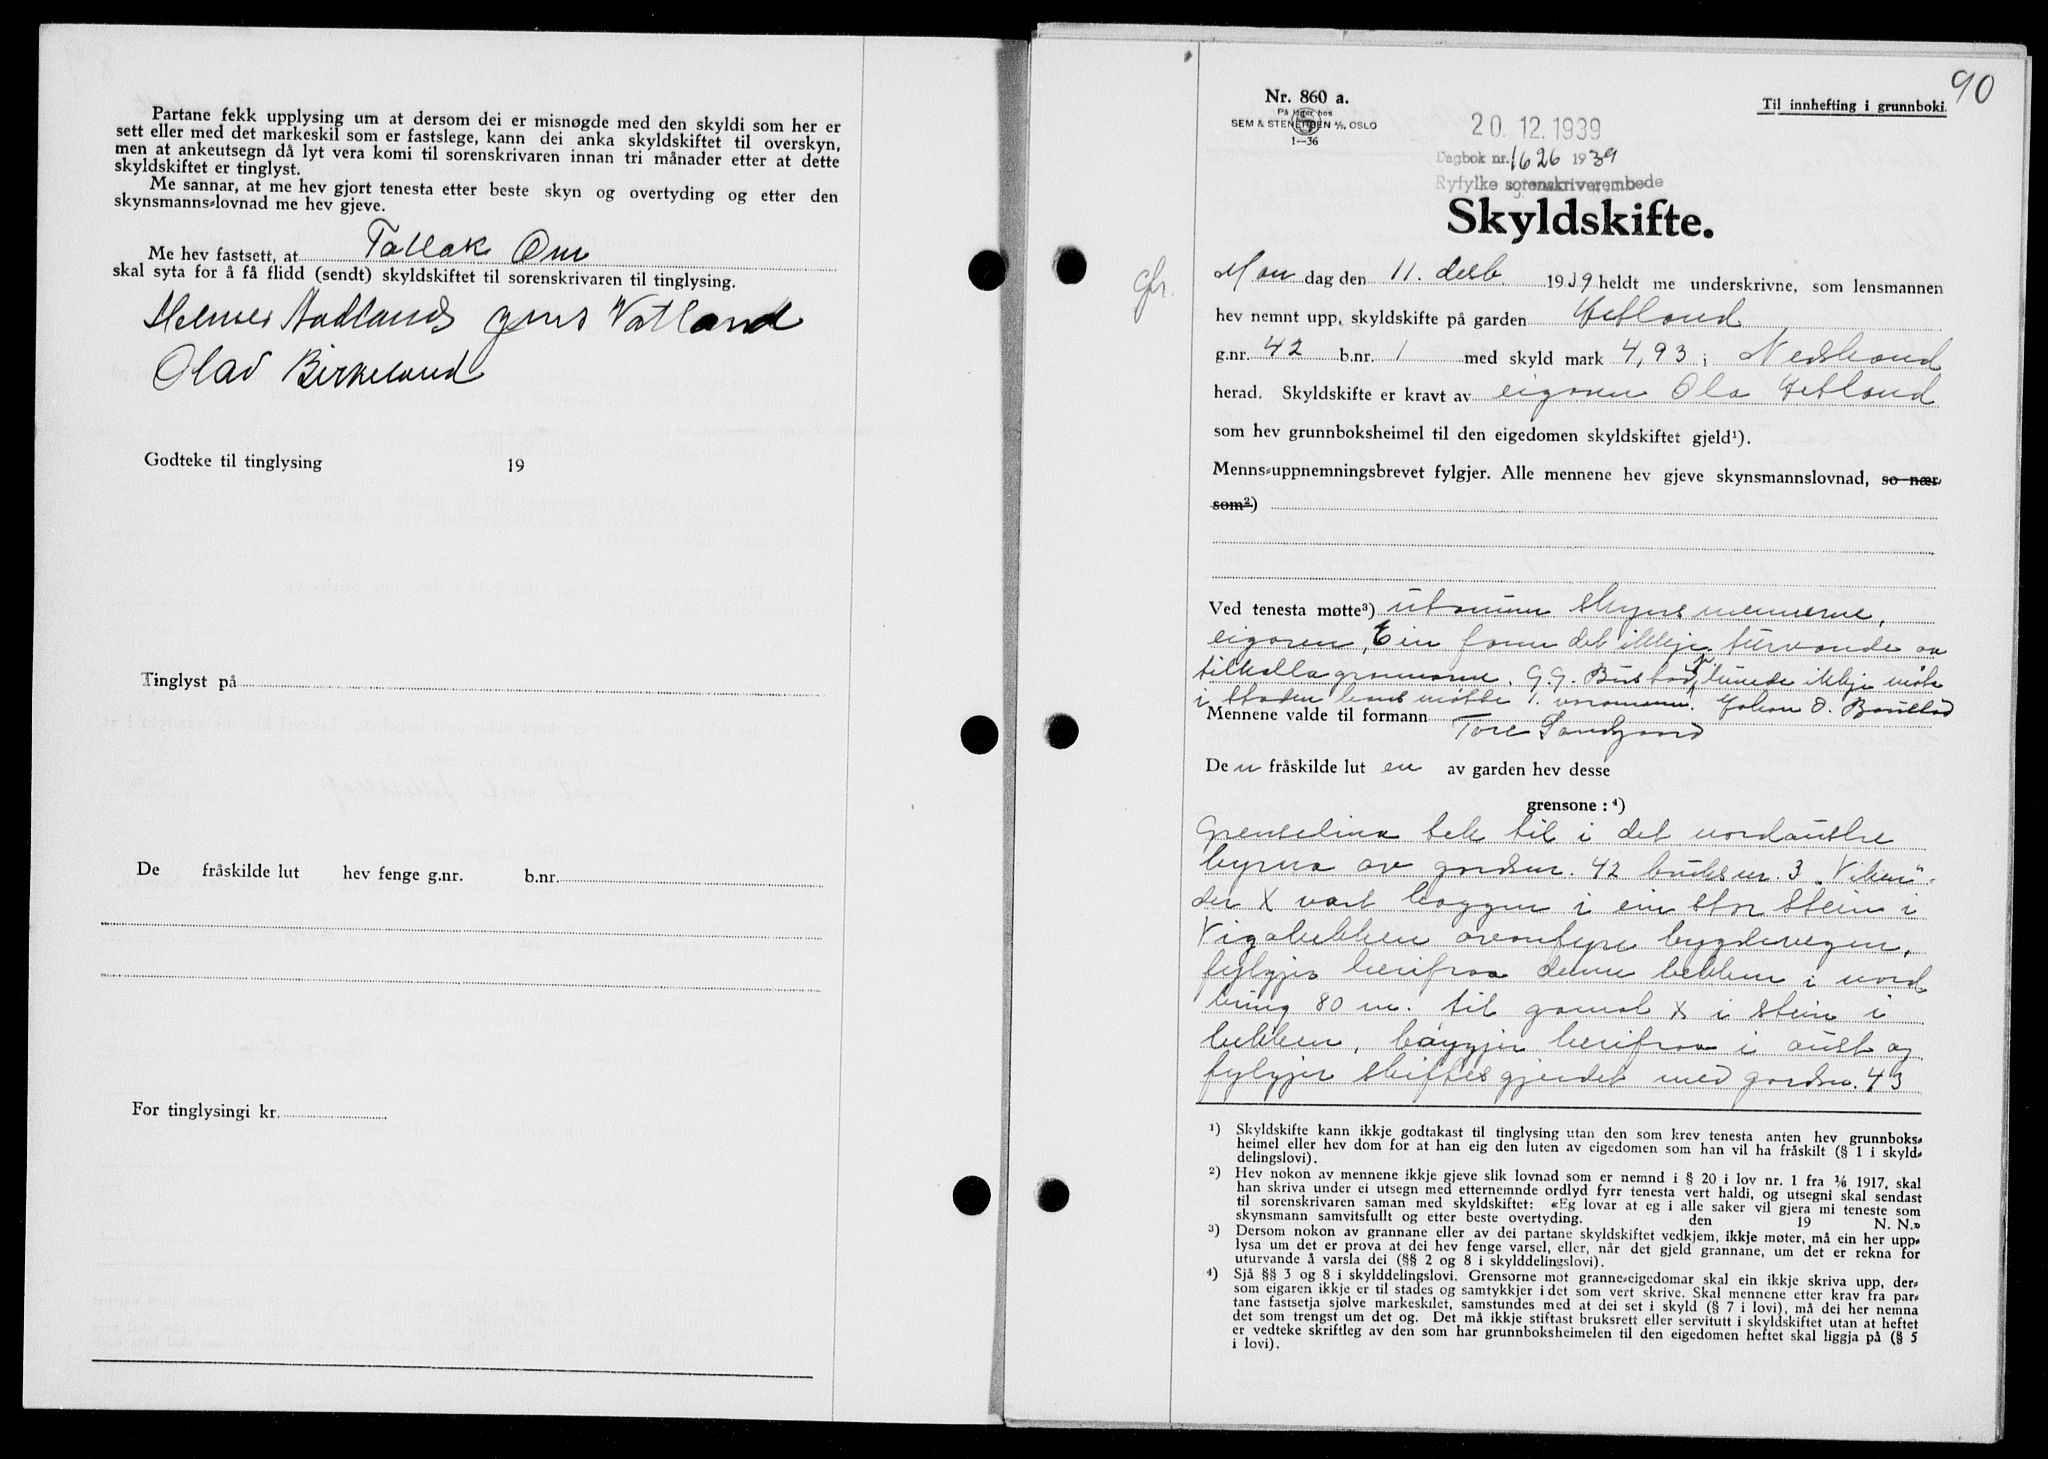 Partane fekk upplysing um at dersom dei er misnøgde med den skyldi som her er
sett eller med det markeskil som er fastslege, kann dei anka skyldskiftet til overskyn,
men at ankeutsegn då lyt vera komi til sorenskrivaren innan tri månader etter at dette
skyldskiftet er tinglyst.
Me sannar, at me hev gjort tenesta etter beste skyn og overtyding og etter den
skynsmanns-lovnad me hev gjeve.
Me hev fastsett, at Tallak
skal syta for å få flidd (sendt) skyldskiftet til sorenskrivaren til tinglysing.
Vatland
Olav Birkeland
Godteke til tinglysing 19
Tinglyst på
De fråskilde lut hev fenge g.nr. b.nr.
For tinglysingi kr.
90
Nr. 860 a.
Til innhefting i grunnboki.
På lager hos
SEM & STENERSEN A/S, OSLO
1—36
20. 12. 1939
Dagbok nr. 1626 1939
Ryfylke sorenskriverembede
Skyldskifte.
Mandag den 11. desb. 1939 heldt me underskrivne, som lensmannen
hev nemnt upp, skyldskifte på garden Hetland
g.nr. 42 b.nr. 1 med skyld mark 4,93 i Nedstrand
herad. Skyldskifte er kravt av eigaren Ola Hetland
som hev grunnboksheimel til den eigedomen skyldskiftet gjeld¹).
Menns-uppnemningsbrevet fylgjer. Alle mennene hev gjeve skynsmannslovnad, so nær
som²)
Ved tenesta møtte³) utanum skynsmennerne,
eigaren, Ein fann det ikkje turvande aa
tilkalla grannarne. G. G. Bustad kunde ikkje møta
i staden hans møtte 1. varamann. Johan O. Baustad
Mennene valde til formann Tore Sandgard
Den fråskilde lut en av garden hev desse
grensone: ⁴)
Grenselina tek til i det nordaustre
hyrna av gardsnr. 42 bruksnr. 3 „Viken"
der X vart hoggen i ein stor stein i
Vigabekken ovanfyre bygdevegen,
fylgjer herifraa denne bekken i nord
kring 80 m. til gamal X i stein i
bekken, bøygjer herifraa i aust og
fylgjer skiftesgjerdet med gardsn. 43
¹) Skyldskifte kann ikkje godtakast til tinglysing utan den som krev tenesta anten hev grunnboks-
heimel eller hev dom for at han eig den luten av eigedomen som han vil ha fråskilt (§ 1 i skyld-
delingslovi).
²) Hev nokon av mennene ikkje gjeve slik lovnad som er nemnd i § 20 i lov nr. 1 fra 1/6 1917, skal
han skriva under ei utsegn med etternemnde ordlyd fyrr tenesta vert haldi, og utsegni skal sendast
til sorenskrivaren saman med skyldskiftet: «Eg lovar at eg i alle saker vil gjera mi teneste som
skynsmann samvitsfullt og etter beste overtyding. den 19 N. N.»
³) Dersom nokon av grannane eller av dei partane skyldskiftet vedkjem, ikkje møter, må ein her upp-
lysa um det er prova at dei hev fenge varsel, eller, når det gjeld grannane, um det er rekna for
uturvande å varsla dei (§§ 2 og 8 i skylddelingslovi).
⁴) Sjå §§ 3 og 8 i skylddelingslovi. Grensorne mot granne-eigedomar skal ein ikkje skriva upp, der-
som eigaren ikkje er til stades og samtykkjer i det som vert skrive. Skal mennene etter krav fra par-
tane fastsetja sjølve markeskilet, samstundes med at dei set i skyld (§ 7 i lovi), må dei her nemna
det som trengst um det og. Det må ikkje stiftast bruksrett eller servitutt i skyldskiftet utan at heftet
er vedteke skriftleg av den som har grunnboksheimelen til den eigedomen heftet skal liggja på (§ 5
i lovi).